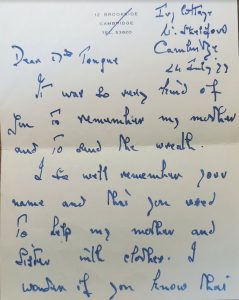 12 BROOKSIDE
CAMBRIDGE
TEL. 53920
Ivy Cottage
Lt. Shelford
Cambridge
24 July 79
Dear Mrs Tongue
It was so very kind of
you to remember my mother
and to send the wreath.
I so well remember your
name and that you used
to help my mother and
sister with clothes. I
wonder if you know that